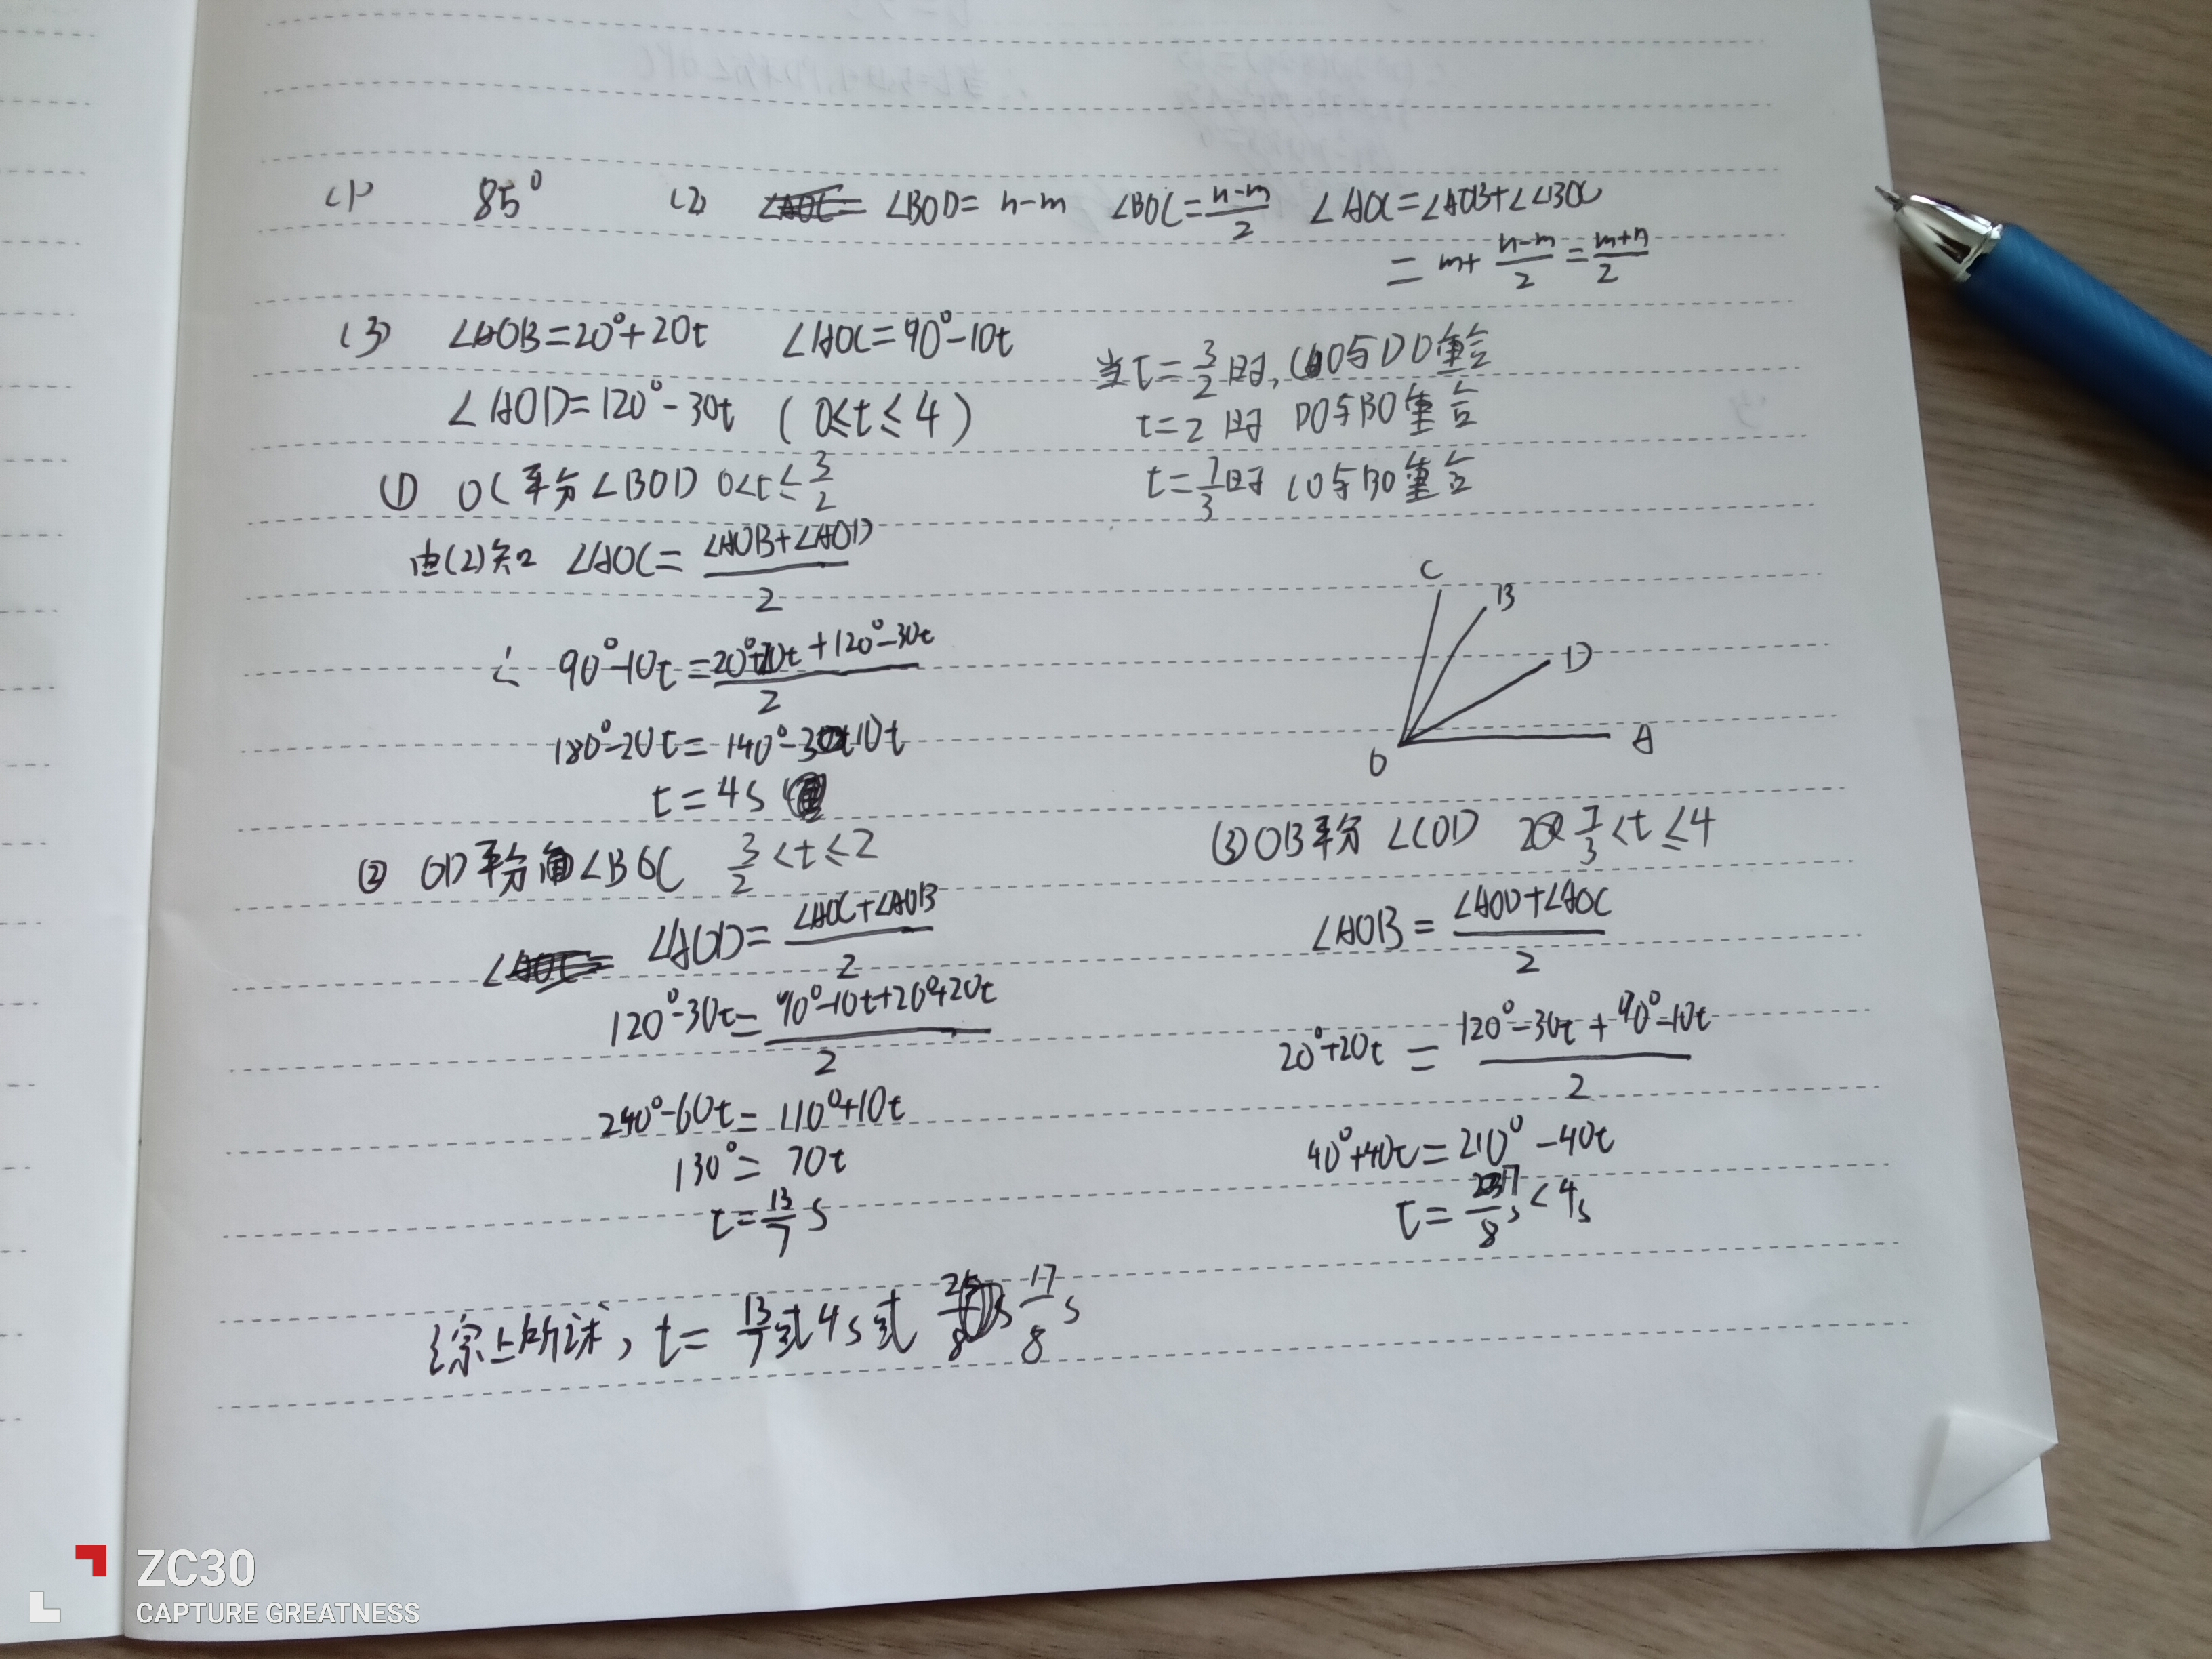 (1) 85° (2) ∠BOD= n-m ∠BOC=\frac{n-m}{2} ∠AOC=∠AOB+∠∠BOC
= m+\frac{n-m}{2}=\frac{m+n}{2}
(3) ∠AOB=20°+20t ∠AOC=90°-10t
∠AOD=120°-30t (0≤t≤4)
当t=\frac{3}{2}时, CO与DO重合
t=2时 DO与BO重合
t=\frac{7}{3}时 CO与BO重合
① OC平分∠BOD 0<t≤\frac{3}{2}
由(2)知 ∠AOC=\frac{∠AOB+∠AOD}{2}
∴ 90°-10t=\frac{20°+20t+120°-30t}{2}
180°-20t=140°-10t
t=4s
C
B
D
A
O
② OD平分∠BOC \frac{3}{2}<t≤2
∠AOD=\frac{∠AOC+∠AOB}{2}
120°-30t=\frac{90°-10t+20°+20t}{2}
240°-60t=110°+10t
130°=70t
t=\frac{13}{7}s
③OB平分∠COD \frac{7}{3}<t≤4
∠AOB=\frac{∠AOD+∠AOC}{2}
20°+20t=\frac{120°-30t+90°-10t}{2}
40°+40t=210°-40t
t=\frac{17}{8}s<4s
综上所述, t=\frac{13}{7}或4s或\frac{17}{8}s
ZC30
CAPTURE GREATNESS